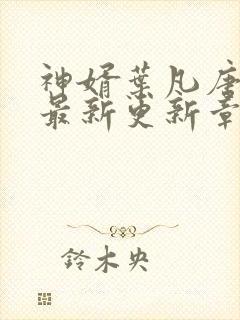 神婿葉凡唐
最新更新章
鈴木央